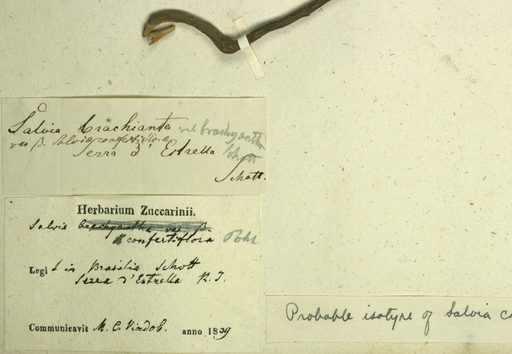 Salvia brachianta vel brachyantha
var β. Salvia confertiflora Schott
Serra d'Estrella
Schott.
Herbarium Zuccarinii.
Salvia brachyantha var β.
confertiflora Pohl
Legit in Brasilia Schott
Serra d'Estrella R. J.
Communicavit M. C. Vindob. anno 1839
Probable isotype of Salvia co